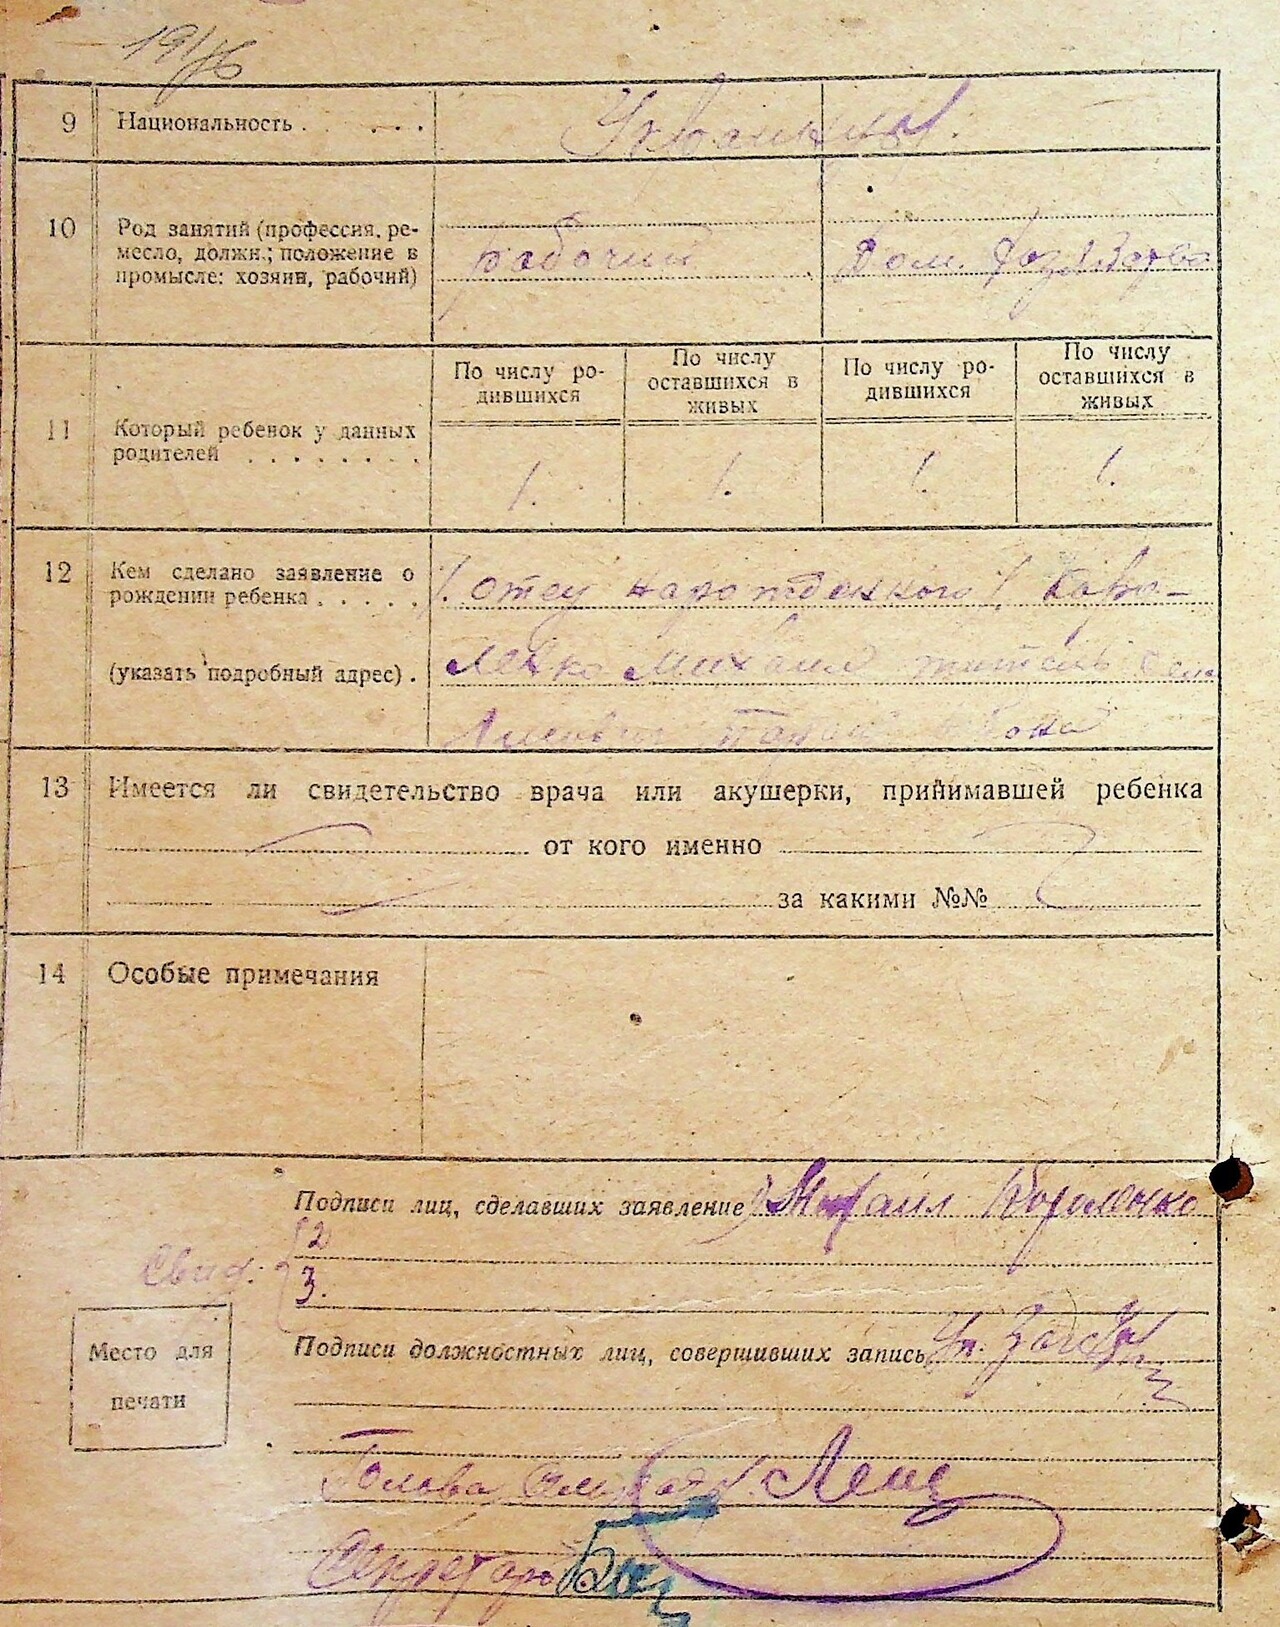 19/
9 Национальность . . . . . Украинцы.
10 Род занятий (профессия, ре-
месло, должн.; положение в
промысле: хозяин, рабочий)
рабочий Дом.
11 Который ребенок у данных
родителей . . . . . . . .
По числу ро-
дившихся
По числу
оставшихся в
живых
По числу ро-
дившихся
По числу
оставшихся в
живых
1. 1. 1. 1.
12 Кем сделано заявление о
рождении ребенка . . . . .
(указать подробный адрес) .
отец Коро-
ленко Михаил житель
13 Имеется ли свидетельство врача или акушерки, принимавшей ребенка
от кого именно
за какими №№
14 Особые примечания
Подписи лиц, сделавших заявление Михаил Короленко
2
Свид. 3.
Место для
печати
Подписи должностных лиц, совершивших запись
Голова
Секретарь